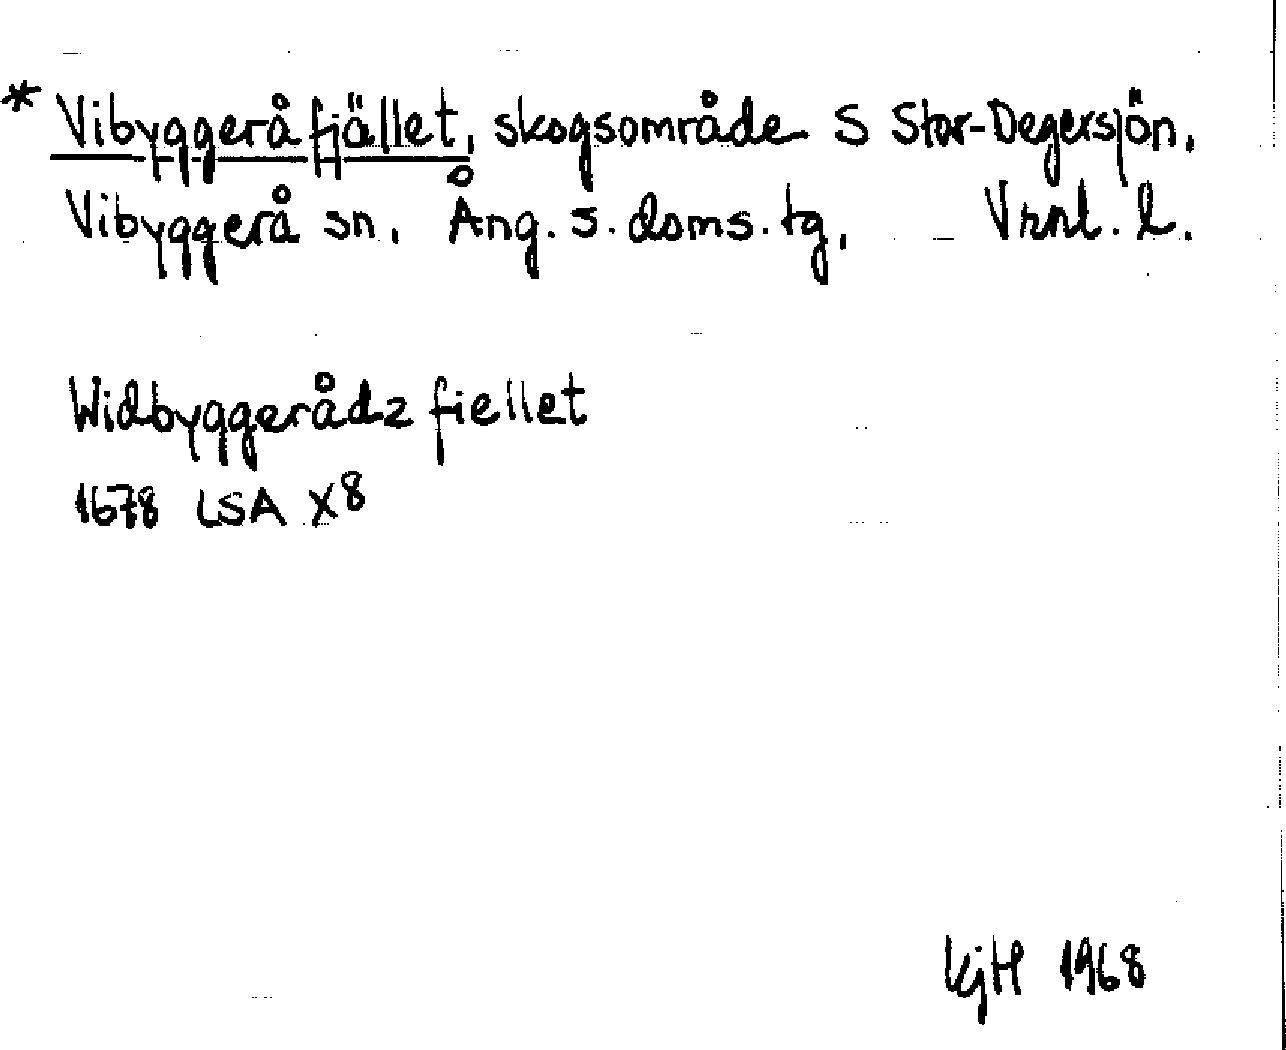 * Vibyggeråfjället, skogsområde S Stor-Degersjön.
Vibyggerå sn. Ång. s. doms. tg. Vnrl. l.
Widbyggerådz fiellet
1678 LSA X8
KjH 1968